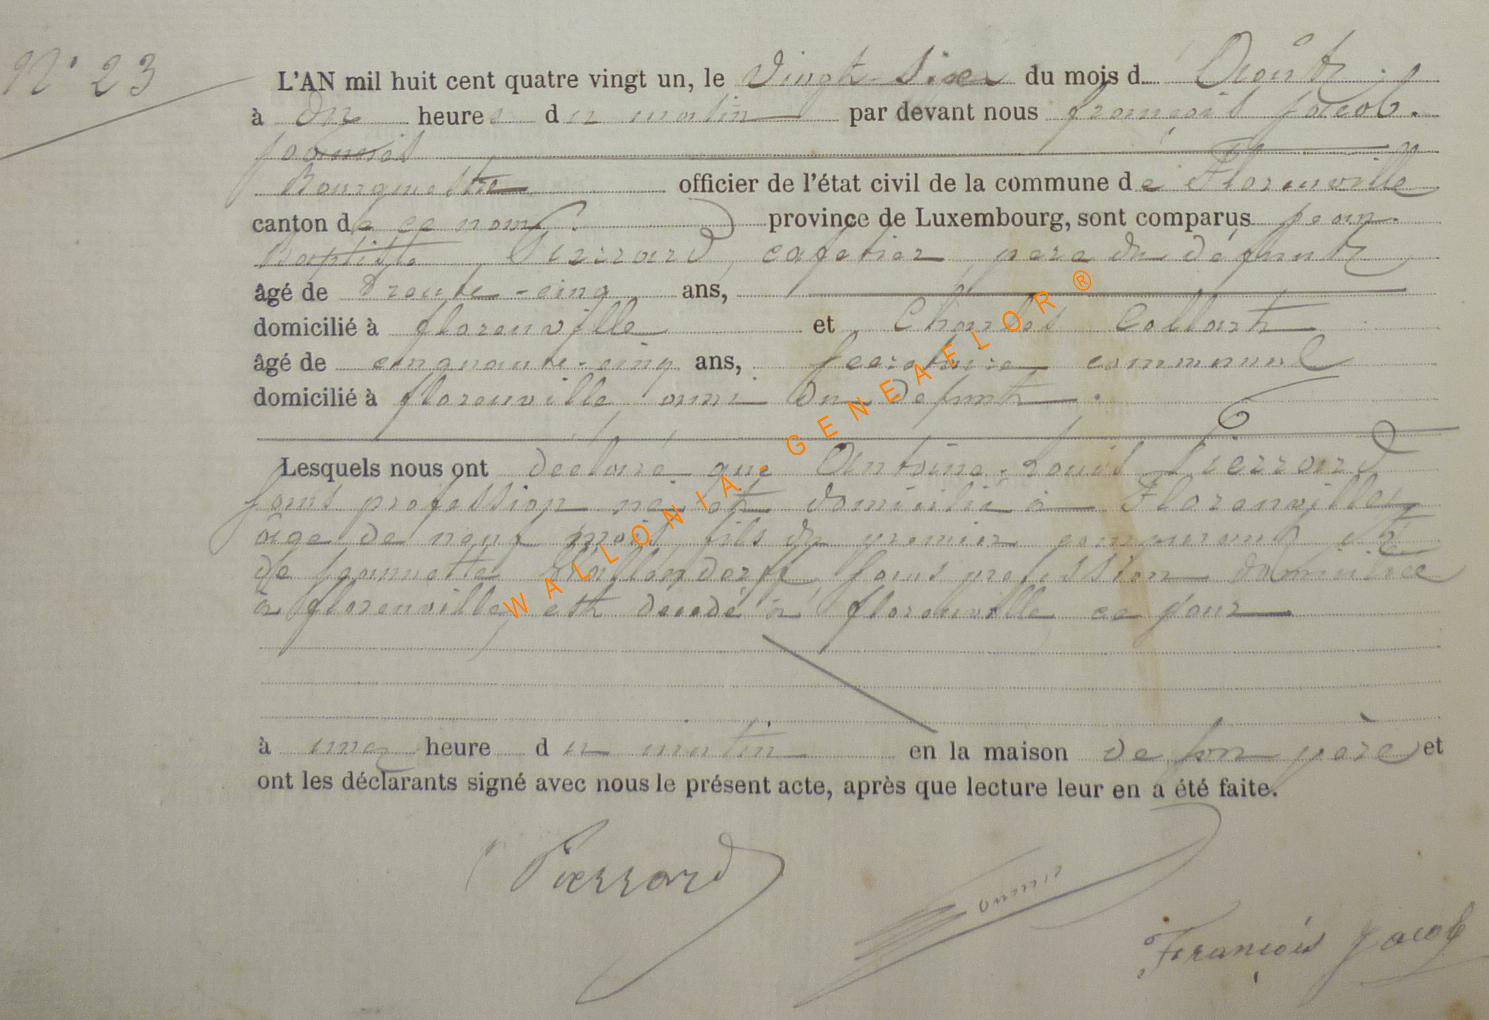 N° 23
L'AN mil huit cent quatre vingt un, le Vingt-Six du mois d Août
à Dix heures du matin par devant nous françois Jacob.
Bourgmestre officier de l'état civil de la commune de Florenville
canton de ce nom. province de Luxembourg, sont comparus jean-
Baptiste Pierrard, cafetier, père du défunt
âgé de trente-cinq ans,
domicilié à florenville et Charles Collart
âgé de cinquante-cinq ans, secretaire communal
domicilié à florenville ami du defunt.
Lesquels nous ont déclaré que Antoine-Louis Pierrard
sans profession né et domicilié à Florenville,
âgé de neuf mois, fils du premier comparant et
de jeannette sans profession domiciliée
à florenville, est decedé à florenville ce jour
à une heure du matin en la maison de son père et
ont les déclarants signé avec nous le présent acte, après que lecture leur en a été faite.
Pierrard
François Jacob
WALLONIA GENEAFLOR ®